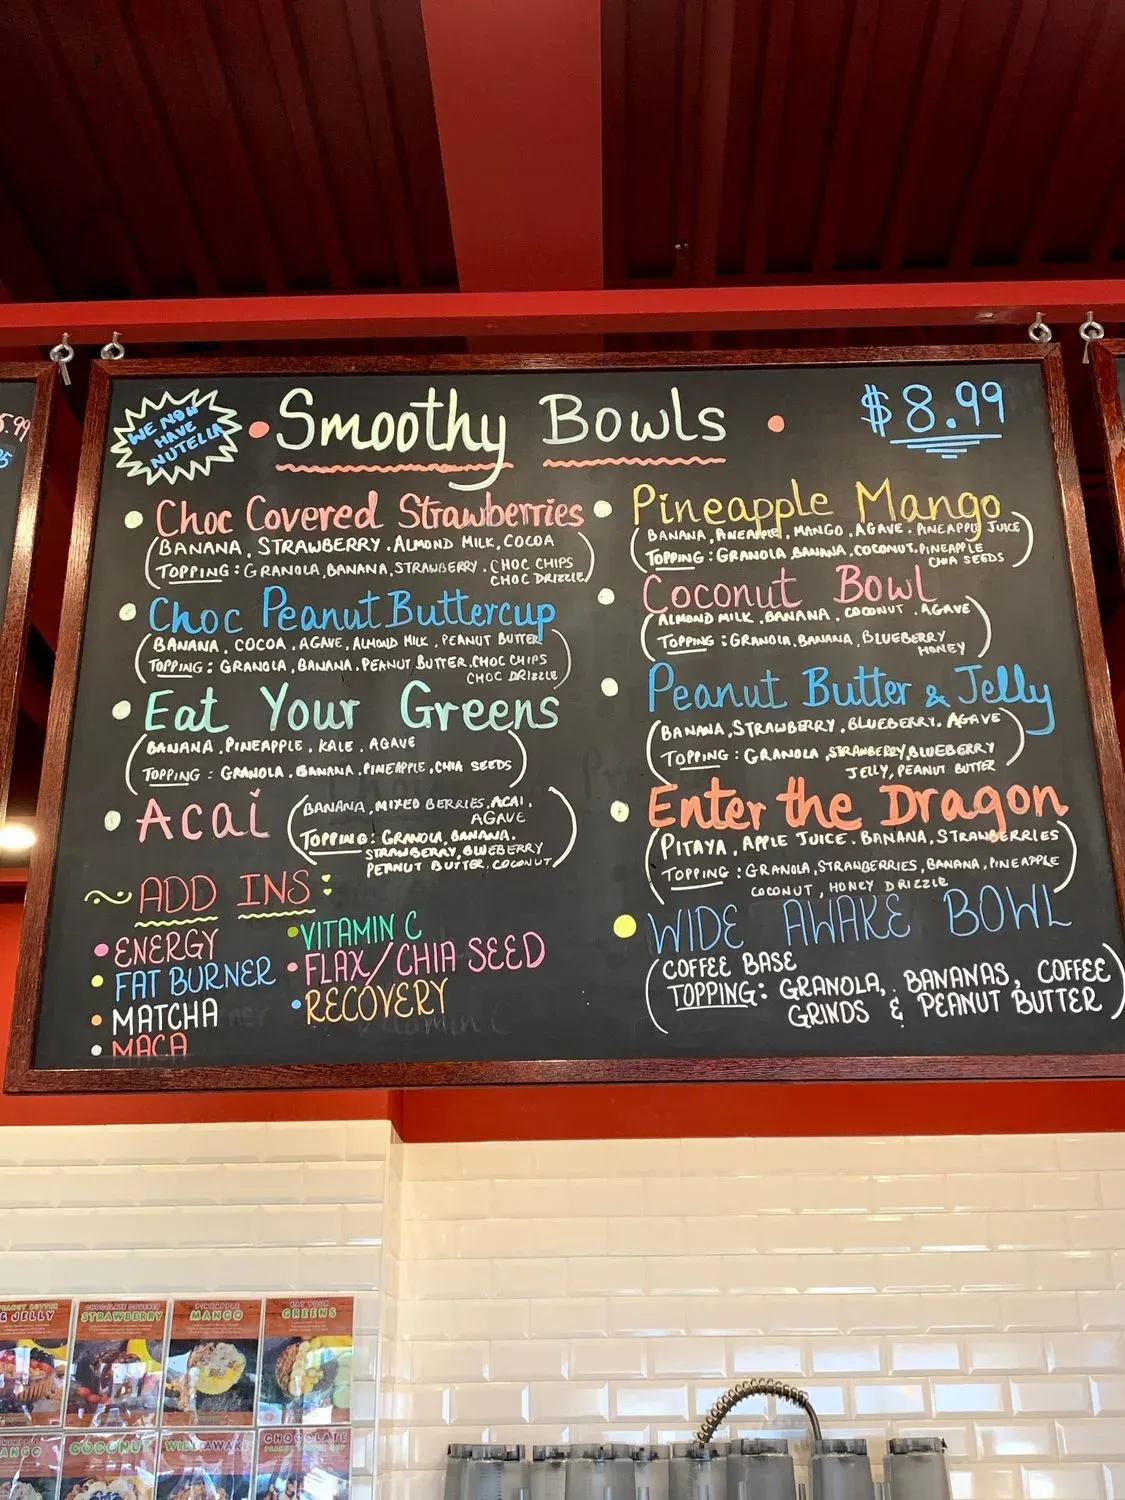 5.99
WE NOW
HAVE
NUTELLA
Smoothy Bowls
$8.99
Choc Covered Strawberries
(BANANA, STRAWBERRY, ALMOND MILK, COCOA
TOPPING: GRANOLA, BANANA, STRAWBERRY, CHOC CHIPS
CHOC DRIZZLE)
Choc Peanut Buttercup
(BANANA, COCOA, AGAVE, ALMOND MILK, PEANUT BUTTER
TOPPING: GRANOLA, BANANA, PEANUT BUTTER, CHOC CHIPS
CHOC DRIZZLE)
Eat Your Greens
(BANANA, PINEAPPLE, KALE, AGAVE
TOPPING: GRANOLA, BANANA, PINEAPPLE, CHIA SEEDS)
Acai
(BANANA, MIXED BERRIES, ACAI,
AGAVE
TOPPING: GRANOLA, BANANA,
STRAWBERRY, BLUEBERRY
PEANUT BUTTER, COCONUT)
ADD INS:
ENERGY
FAT BURNER
MATCHA
MACA
VITAMIN C
FLAX/CHIA SEED
RECOVERY
Pineapple Mango
(BANANA, PINEAPPLE, MANGO, AGAVE, PINEAPPLE JUICE
TOPPING: GRANOLA, BANANA, COCONUT, PINEAPPLE
CHIA SEEDS)
Coconut Bowl
(ALMOND MILK, BANANA, COCONUT, AGAVE
TOPPING: GRANOLA, BANANA, BLUEBERRY
HONEY)
Peanut Butter & Jelly
(BANANA, STRAWBERRY, BLUEBERRY, AGAVE
TOPPING: GRANOLA, STRAWBERRY, BLUEBERRY
JELLY, PEANUT BUTTER)
Enter the Dragon
(PITAYA, APPLE JUICE, BANANA, STRAWBERRIES
TOPPING: GRANOLA, STRANBERRIES, BANANA, PINEAPPLE
COCONUT, HONEY DRIZZLE)
WIDE AWAKE BOWL
(COFFEE BASE
TOPPING: GRANOLA, BANANAS, COFFEE
GRINDS & PEANUT BUTTER)
PEANUT BUTTER
& JELLY
CHOCOLATE COVERED
STRAWBERRY
PINEAPPLE
MANGO
EAT YOUR
GREENS
COCONUT
WIDE AWAKE
CHOCOLATE